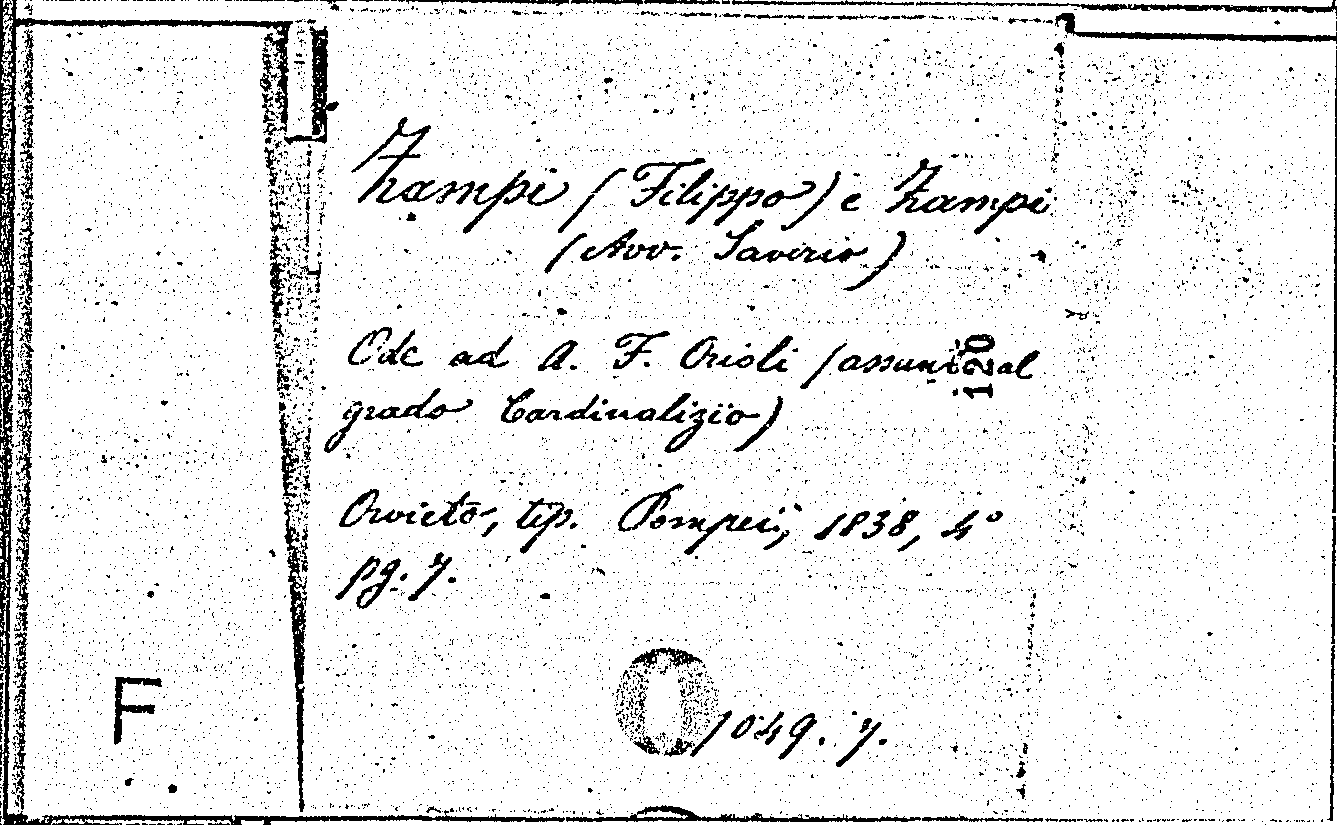 Zampi (Filippo) e Zampi
(Avv. Saverio)
Ode ad A. F. Orioli (assunto al
120
grado Cardinalizio)
Orvieto, tip. Pompei, 1838, 4º
pg. 7.
F
1049. 7.